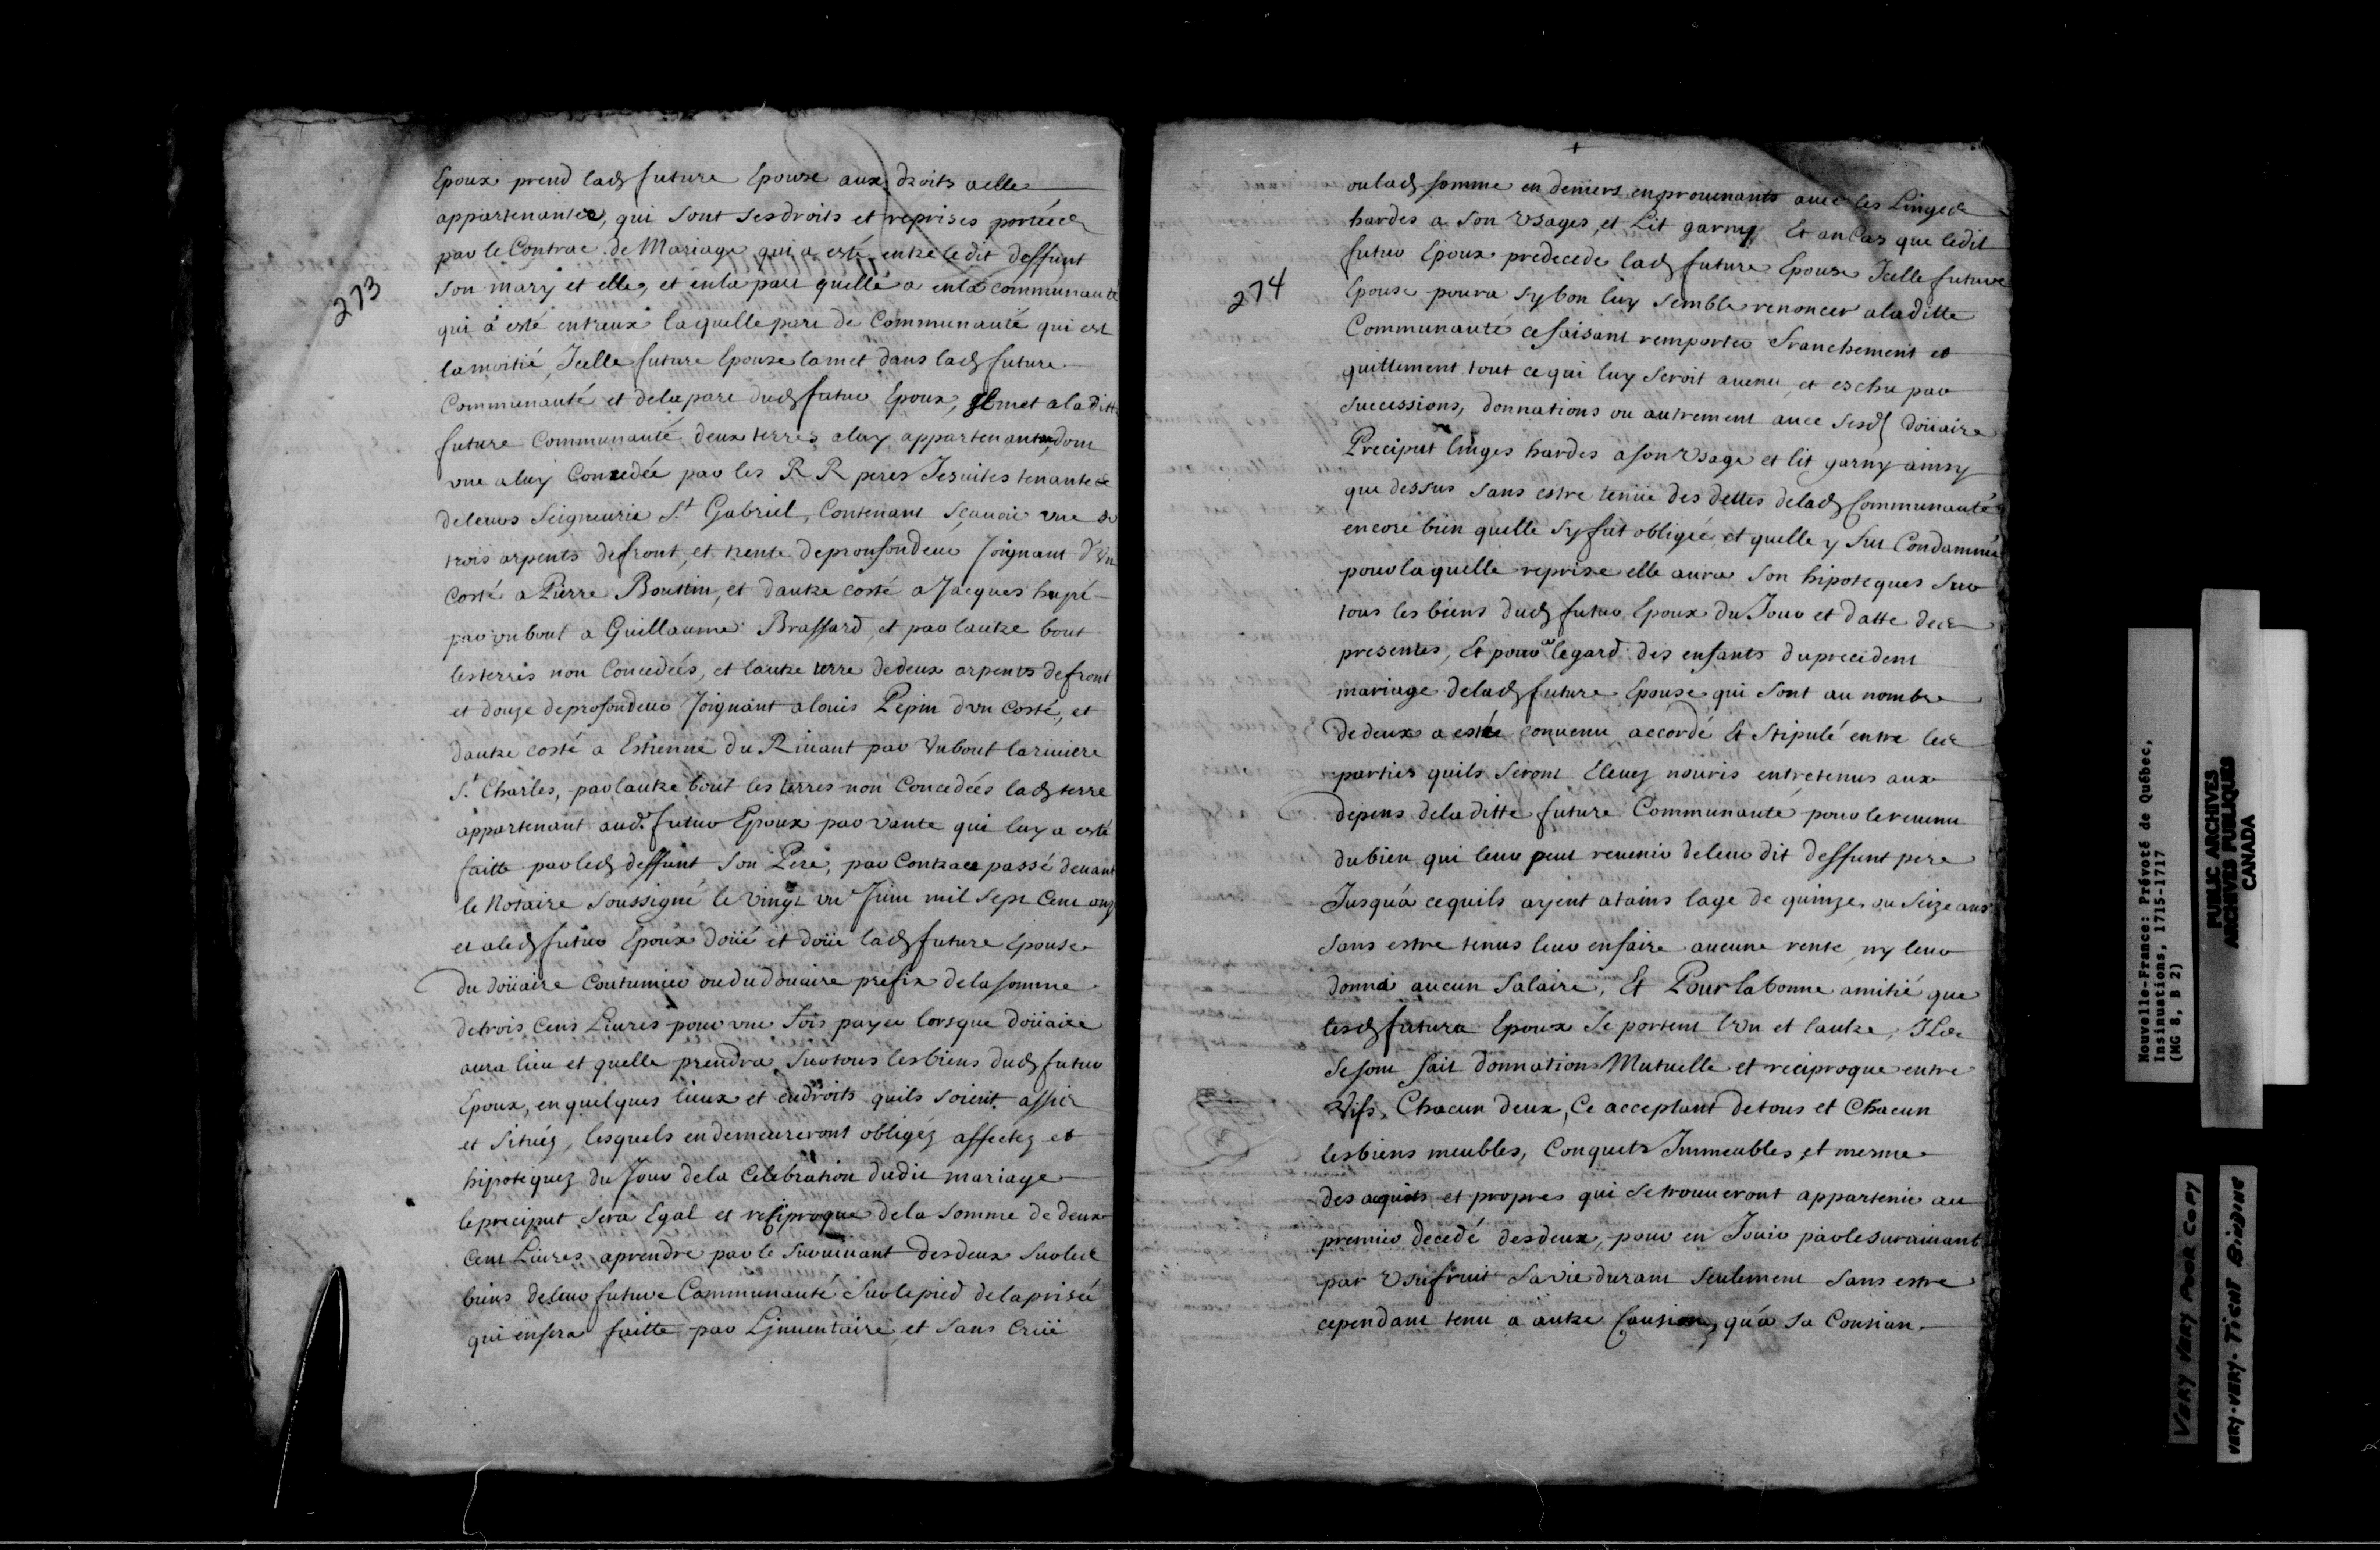 273
Epoux prend lad future Epouse aux droits a elle
appartenantes, qui sont ses droits et reprises portées
par le Contrac de Mariage qui a esté entre le dit deffunt
son mary et elle, et en la part quelle a en la communauté
qui a esté entreux laquelle part de Communauté qui est
la moitié, Icelle future Epouse la met dans lad future
Communauté et de la part dud futur Epoux, Il met a la ditte
future Communauté deux terres a luy appartenantes, dont
une a luy Concedée par les R R peres Jesuites tenante
de leurs Seigneurie St Gabriel, Contenant Sçavoir une de
trois arpents de front, et trente de prousfondeur Joignant d'Un
costé a Pierre Boutin, et dautre costé a Jacques hupé
par un bout a Guillaume Brassard, et par lautre bout
les terres non Concedées, et lautre terre de deux arpents de front
et douze de profondeur Joignant a louis Pepin dun costé, et
dautre costé a Estienne Du Rivant par Un bout la riviere
St Charles, par lautre bout les terres non Concedées lad terre
appartenant aud. futur Epoux par vante qui luy a esté
faitte par led deffunt son Pere, par Contract passé devant
le Notaire Soussigné le vingt un Juin mil sept Cent onz
et a led futur Epoux doüé et doüe lad future Epouse
du doüaire Coutumier ou du doüaire prefix de la somme
de trois Cens Livres pour une fois payer lorsque doüaire
aura lieu et quelle prendra Sur tous les biens dud futur
Epoux, en quelques lieux et endroits quils soient assis
et Situéz, lesquels en demeureront obligéz affectez et
hipotequez du Jour de la Celebration dudit mariage
le preciput sera Egal et resiproque de la Somme de deux
Cent Livres a prendre par le Survivant des deux Sur les
biens de leur future Communauté Sur le pied de la prisée
qui en sera faitte par L'inventaire, et sans Criïe
274
ou lad somme en deniers en provenants avec les Linge
hardes a son Usages, et Lit garny Et an Cas que ledit
futur Epoux predecede lad future Epouse Icelle future
Epouse poura sy bon luy semble renoncer a la ditte
Communauté ce faisant remporter franchement et
quittement tout ce qui luy seroit avenu et eschu par
successions, donnations ou autrement avec sesd doüaire
Preciput linges hardes a son Usage et lit garny ainsy
que dessus sans estre tenüe des dettes de lad Communauté
encore bien quelle sy fut obligée et quelle y fut Condamnée
pour laquelle reprise elle aura son hipoteques Sur
tous les biens dud futur Epoux du Jour et datte des
presentes, Et pour legard des enfants du precident
mariage de lad future Epouse qui sont au nombre
de deux a esté convenu accordé Et stipulé entre les
parties quils seront Elevez nouris entretenus aux
depens de la ditte future Communauté pour le revenu
du bien qui leur peut revenir de leur dit deffunt pere
Jusqu'a ce quils ayent atains lage de quinze ou Seize ans
Sans estre tenus leur en faire aucune rente ny leur
donné aucun Salaire, Et Pour la bonne amitié que
lesd future Epoux se portent l'Un et lautre, Ils
se sont fait donnation Mutuelle et reciproque entre
Vifs, Chacun deux, Ce acceptant de tous et Chacun
les biens meubles, Conquets Immeubles, et mesme
des acquists et propres qui se trouveront appartenir au
premier decedé des deux, pour en Jouir par le survivant
par Usufruit sa vie durant seulement sans estre
cependant tenu a autre Caution, qu'a sa Caution.
Nouvelle-France: Prévoté de Québec,
Insinuations, 1715-1717
(MG 8, B 2)
PUBLIC ARCHIVES
ARCHIVES PUBLIQUES
CANADA
VERY VERY POOR COPY
VERY-VERY-TIGHT BINDING